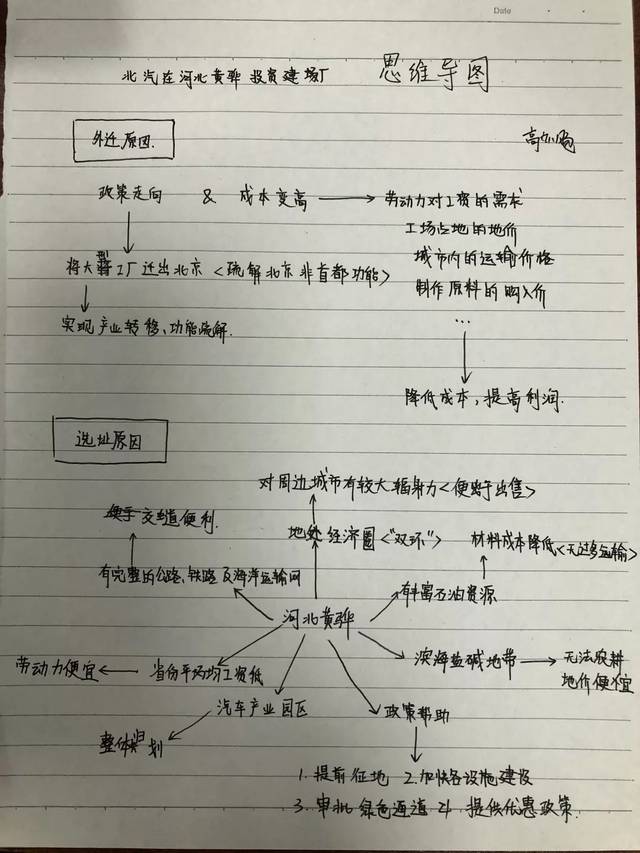 Date
北汽在河北黄骅投资建场厂 思维导图
外迁原因.
政策走向 & 成本变高 劳动力对工资的需求
工场占地的地价
将大型工厂迁出北京<疏解北京非首都功能> 城市内的运输价格
制作原料的购入价
实现产业转移、功能疏解. …
降低成本，提高利润.
选址原因
对周边城市有较大辐射力<便于出售>
交通便利.
地处经济圈<"双环"> 材料成本降低<无过多运输>
有完整的公路、铁路及海洋运输网 有丰富石油资源
河北黄骅
劳动力便宜 省份平均工资低 滨海盐碱地带 无法农耕
地价便宜
汽车产业园区 政策帮助
整体规划
1. 提前征地 2. 加快各设施建设
3. 审批绿色通道 4. 提供优惠政策.